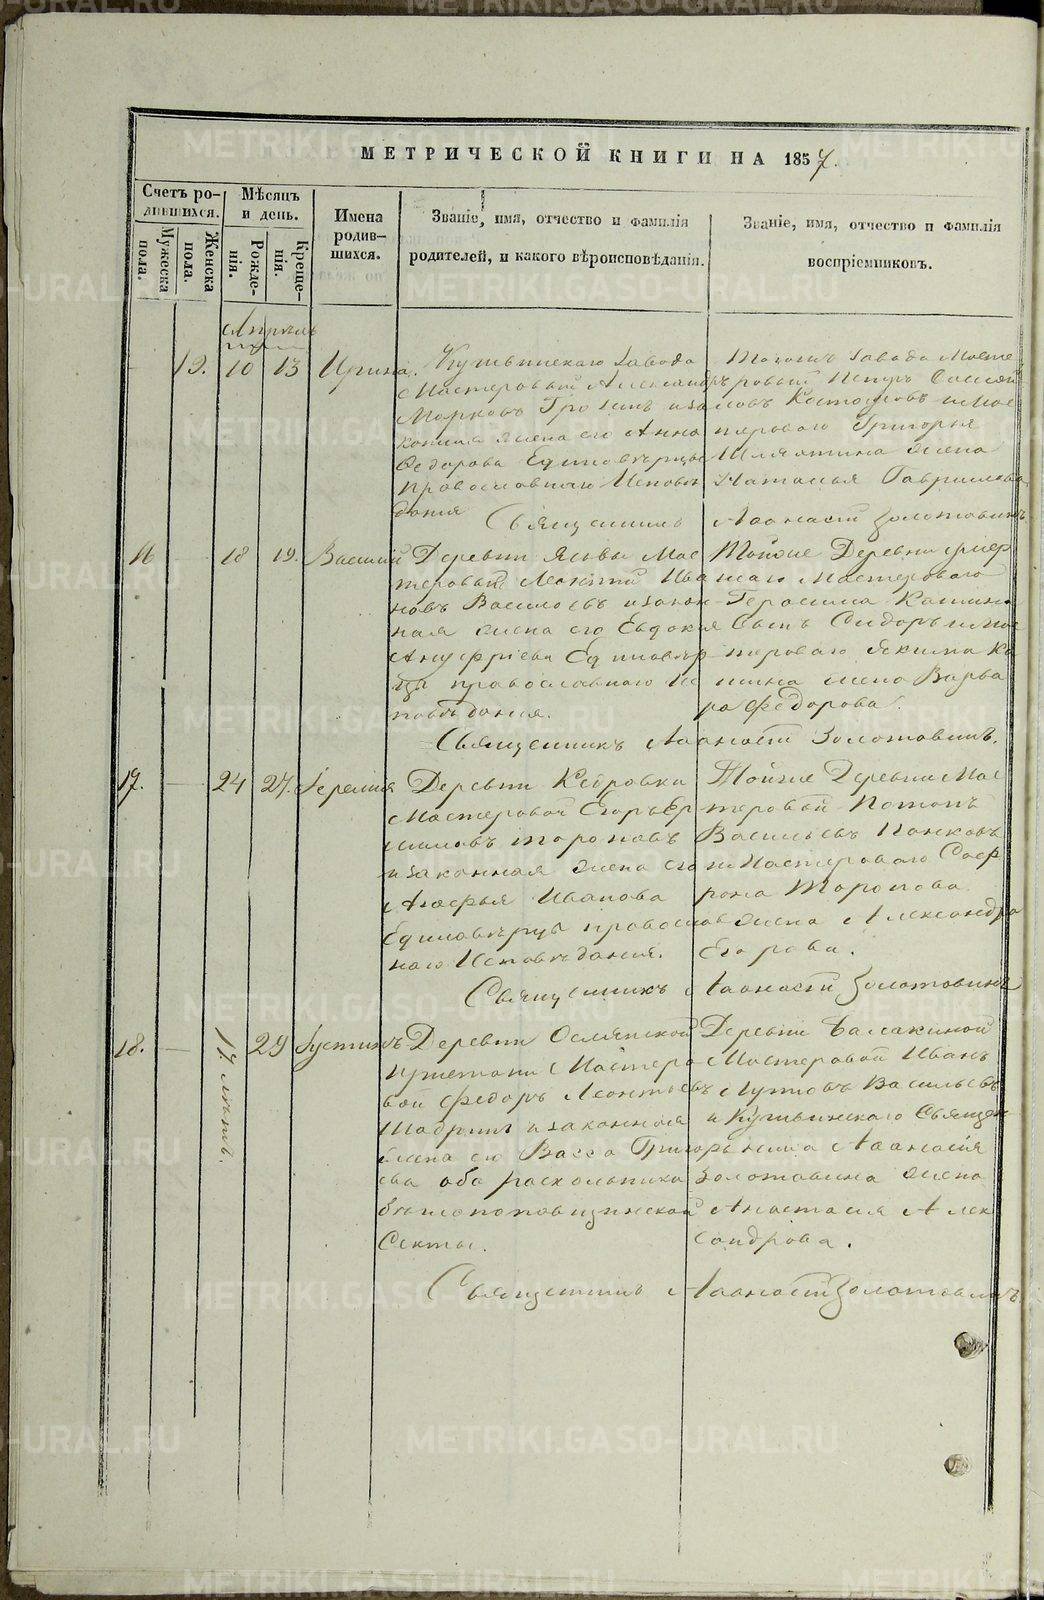 МЕТРИЧЕСКОЙ КНИГИ НА 1857.
Счетъ родившихся.
Мужеска пола.
Женска пола.
Мѣсяцъ и день.
Рожденія.
Крещенія.
Имена родившихся.
Званіе, имя, отчество и фамилія
родителей, и какого вѣроисповѣданія.
Званіе, имя, отчество и фамилія
воспріемниковъ.
Апрѣль
12. 10 13 Ирина.
Кушвинскаго Завода
Мастеровый Александръ
Марковъ и за
конная жена его Анна
Федорова Единовѣрцы
православнаго Исповѣ
данія
Тогожъ Завода Масте
ровый Петръ
и Мас
тероваго Григорья
жена
Наталья Гаврилова
Священникъ Аѳанасій Золотавинъ
16 18 19. Василій
Деревни Мас
теровый Леонтій Ива
новъ Васильевъ и закон
ная жена его Евдокія
Ануфріева Единовѣр
цы православнаго Ис
повѣданія.
Тойже Деревни умер
шаго Мастероваго
Герасима
Сынъ Сидоръ и Мас
тероваго Якима Ка
шина жена Варва
ра Федорова.
Священникъ Аѳанасій Золотавинъ.
17. 24 27. Іеремія
Деревни Кедровки
Мастеровой Егоръ Ер
миловъ Тороповъ
и законная жена его
Агафья Иванова
Единовѣрцы православ
наго Исповѣданія.
Тойже Деревни Мас
теровый Потапъ
Васильевъ Панковъ
и Мастероваго Соф
рона Торопова
жена Александра
Егорова.
Священникъ Аѳанасій Золотавинъ
18. 17. лѣтъ. 29 Іустинъ
Деревни Ослянской
Мастеро
вой Федоръ Леонтьевъ
Шадринъ и законная
жена его Васса Григорь
ева оба раскольники
бѣглопоповщинской
Секты.
Деревни Балакиной
Мастеровой Иванъ
Васильевъ
и Кушвинскаго Священ
ника Аѳанасія
Золотавина жена
Анастасія Алек
сандрова.
Священникъ Аѳанасій Золотавинъ.
METRIKI.GASO-URAL.RU